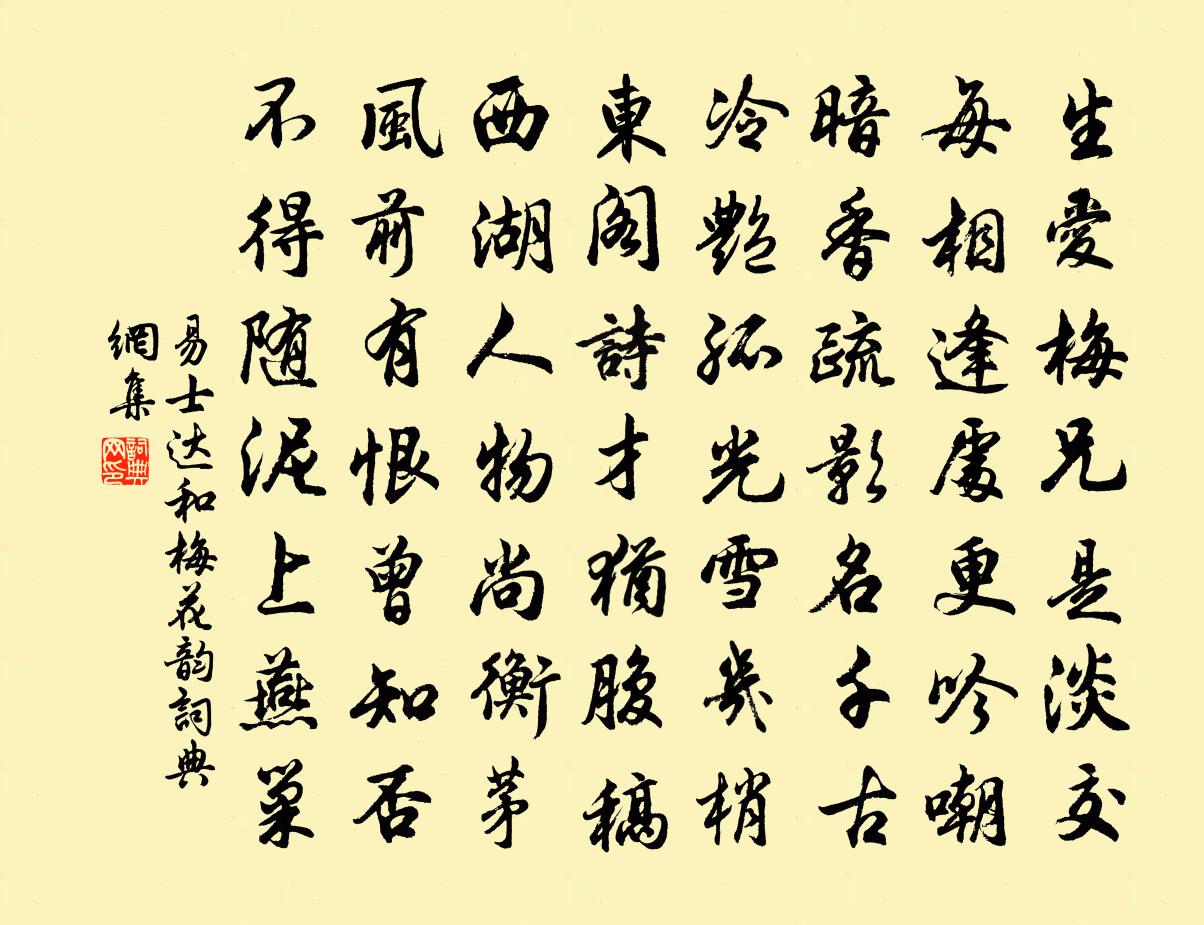 生愛梅兄是淡交
每相逢處更吟嘲
暗香疏影名千古
冷艷孤光雪幾梢
東閣詩才猶腹稿
西湖人物尚衡茅
風前有恨曾知否
不得隨泥上燕巢
易士达和梅花韵詞典
網集
詞典
网印